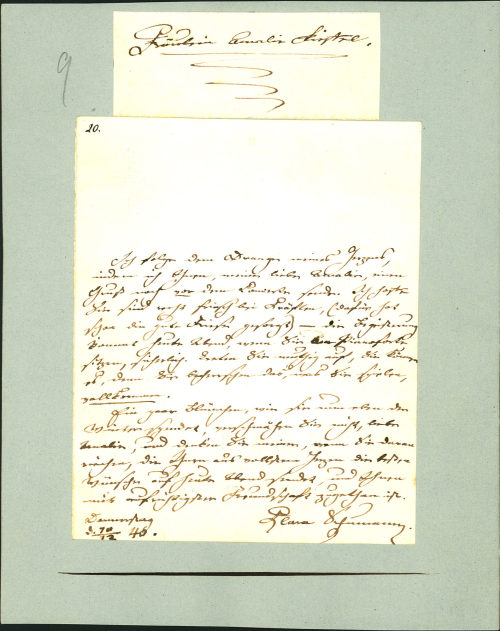 Fräulein Amalie Rieffel.
9
20.
Ich folge dem Drange meines Herzens,
indem ich Ihnen, meine liebe Amalie, einen
Gruß noch vor dem Concerte sende. Ich hoffe
Sie sind recht frisch bei Kräften, (dafür hat
schon die gute gesorgt) — die Begeisterung
kommt heute Abend wenn Sie am Pianoforte
sitzen, sicherlich. Treten Sie muthig auf, Sie können
es, denn Sie beherrschen das, was Sie spielen,
vollkommen.
Ein paar Blümchen, wie sie nun eben der
Winter spendet verschmähen Sie nicht, liebe
Amalie, und denken Sie meiner, wenn Sie daran
riechen, die Ihnen aus vollstem Herzen die besten
Wünsche auf heute Abend sendet, und Ihnen
mit aufrichtigster Freundschaft zugethan ist.
Donnerstag
d. 10/12 40.
Clara Schumann.